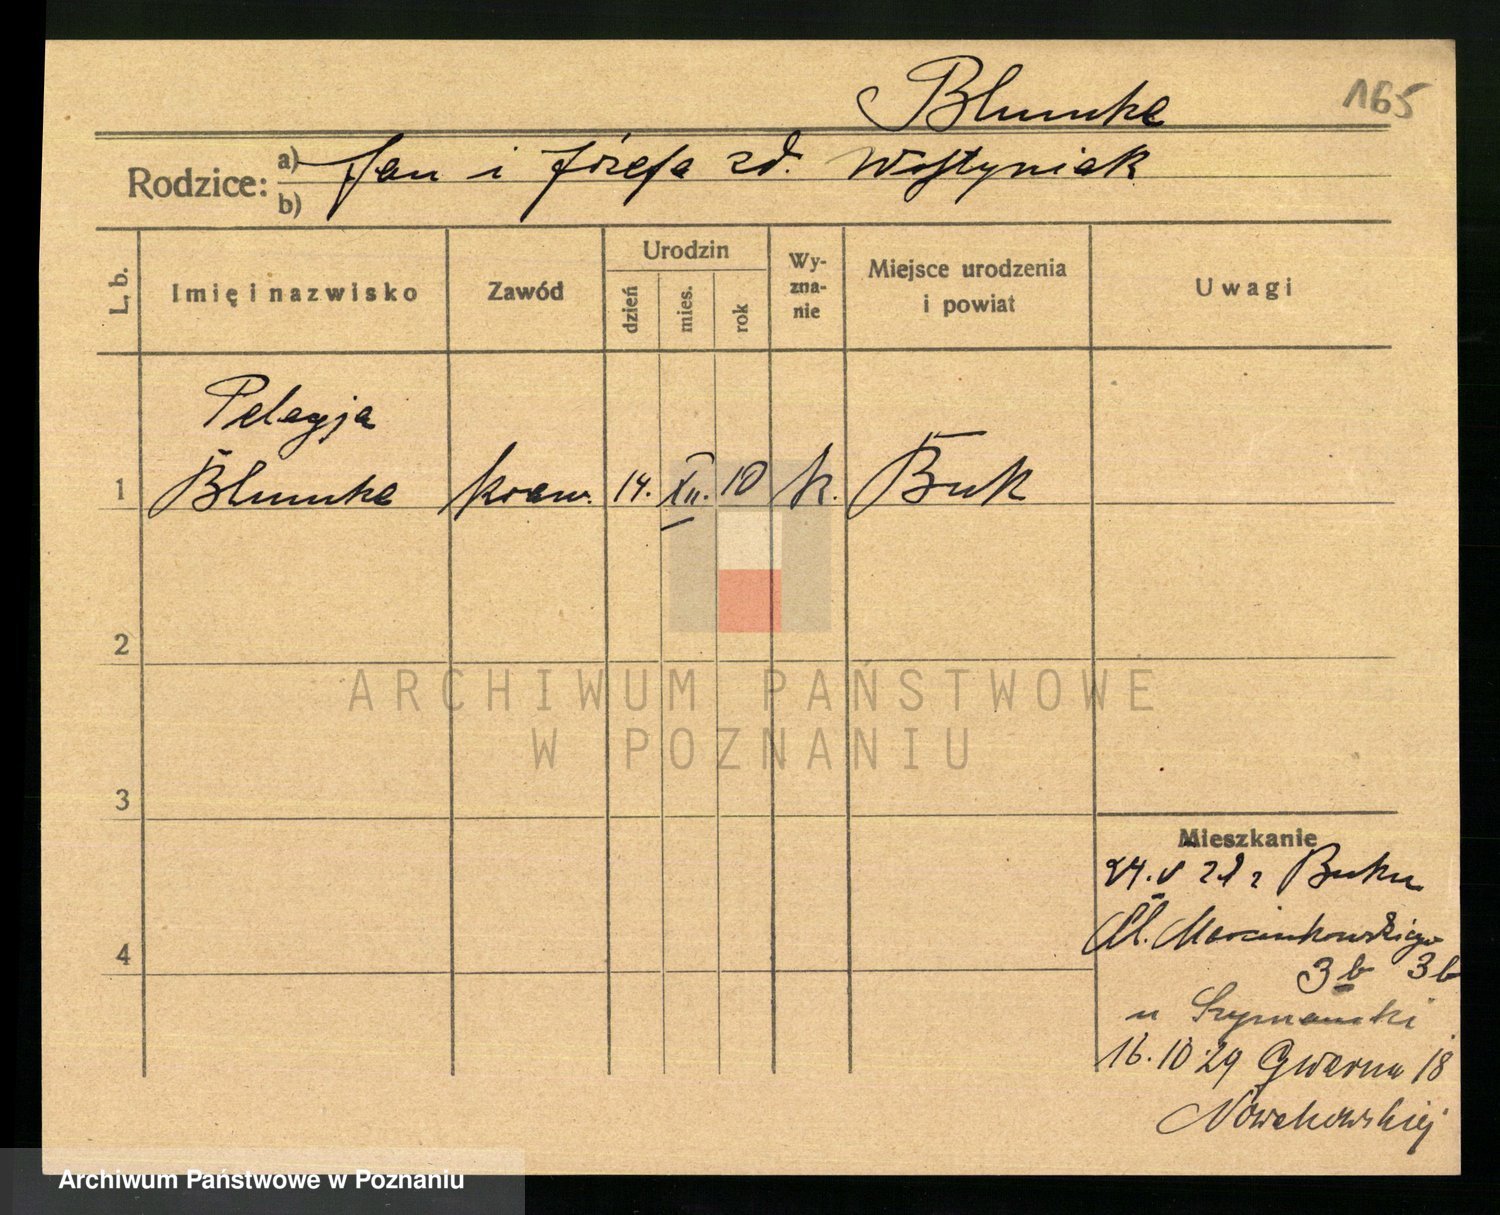 Blumke
165
Rodzice:
a) Jan i Józefa zd. Wojtyniak
b)
L. b.
Imię i nazwisko
Zawód
Urodzin
dzień
mies.
rok
Wy-
zna-
nie
Miejsce urodzenia
i powiat
Uwagi
Pelagja
1 Blumke kraw. 14. XII. 10 k. Buk
2
3
4
Mieszkanie
24. V z Buku
Al. Marcinkowskiego
3b 3b
u Szymański
16.10.29 Gwarna 18
Nowakowskiej
ARCHIWUM PAŃSTWOWE
W POZNANIU
Archiwum Państwowe w Poznaniu